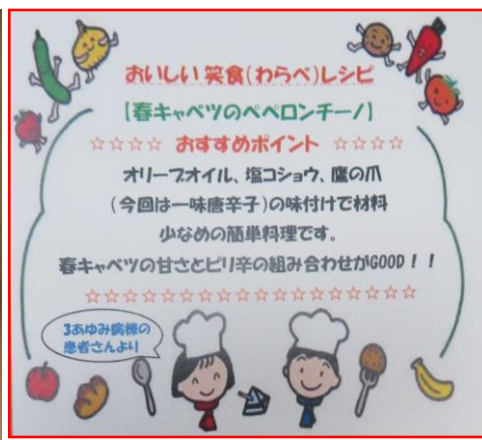 おいしい 笑食(わらべ)レシピ
【春キャベツのペペロンチーノ】
☆☆☆☆ おすすめポイント ☆☆☆☆
オリーブオイル、塩コショウ、鷹の爪
(今回は一味唐辛子)の味付けで材料
少なめの簡単料理です。
春キャベツの甘さとピリ辛の組み合わせがGOOD!!
☆☆☆☆☆☆☆☆☆☆☆☆☆☆☆☆☆
3あゆみ病棟の
患者さんより